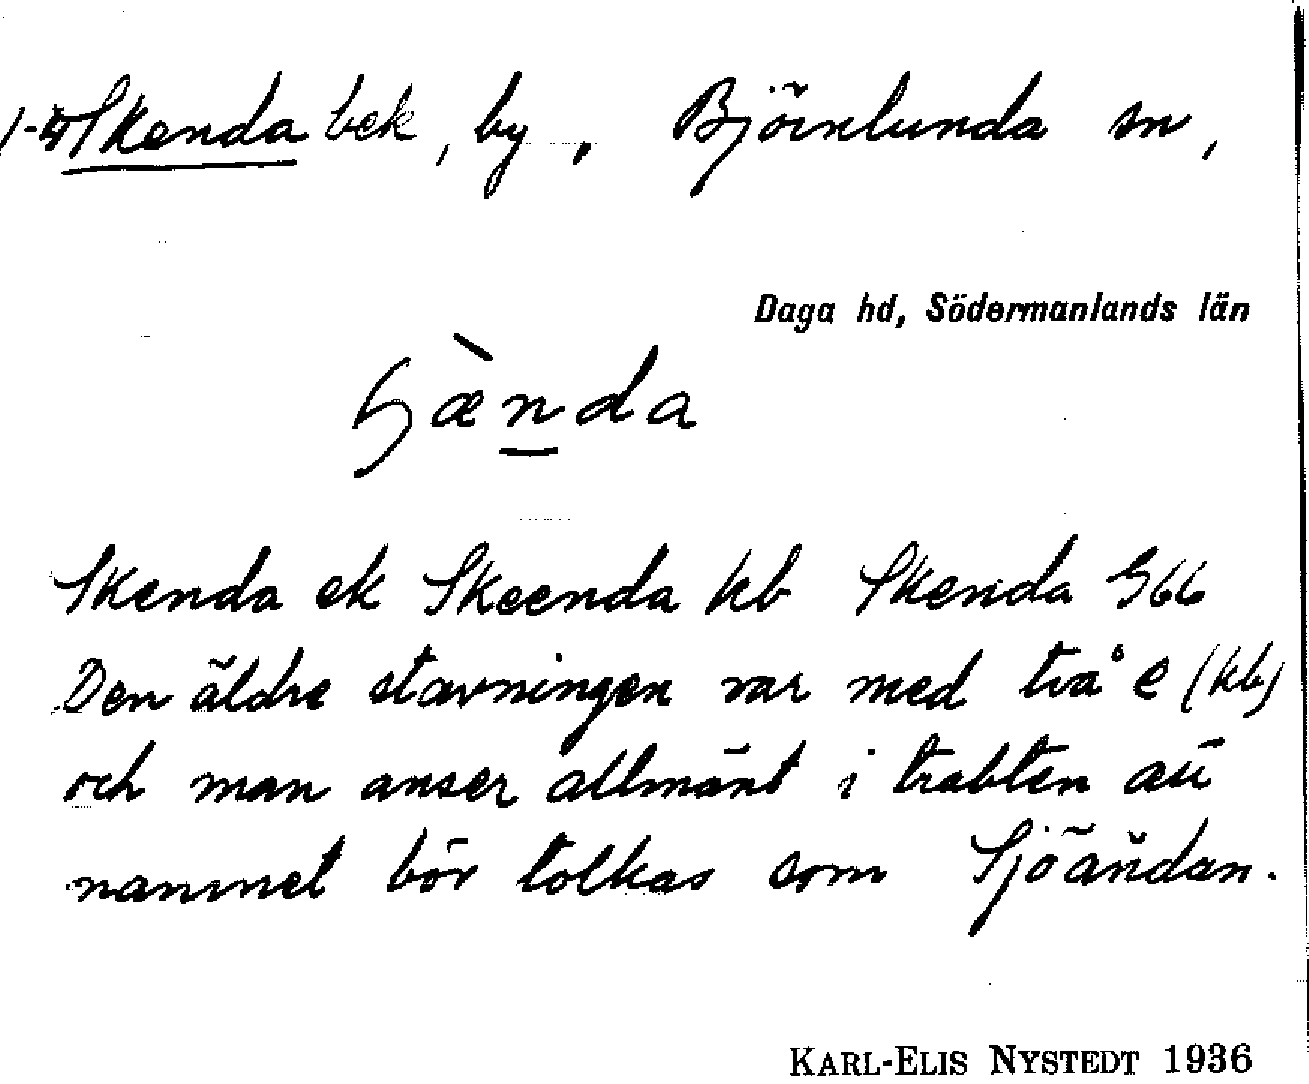 1-4 Skenda bek, by, Björnlunda sn,
Daga hd, Södermanlands län
ɧæ̀nda
Skenda ek Skeenda kb Skenda G66
Den äldre stavningen var med två e (kb)
och man anser allmänt i trakten att
namnet bör tolkas som Sjöändan.
KARL-ELIS NYSTEDT 1936